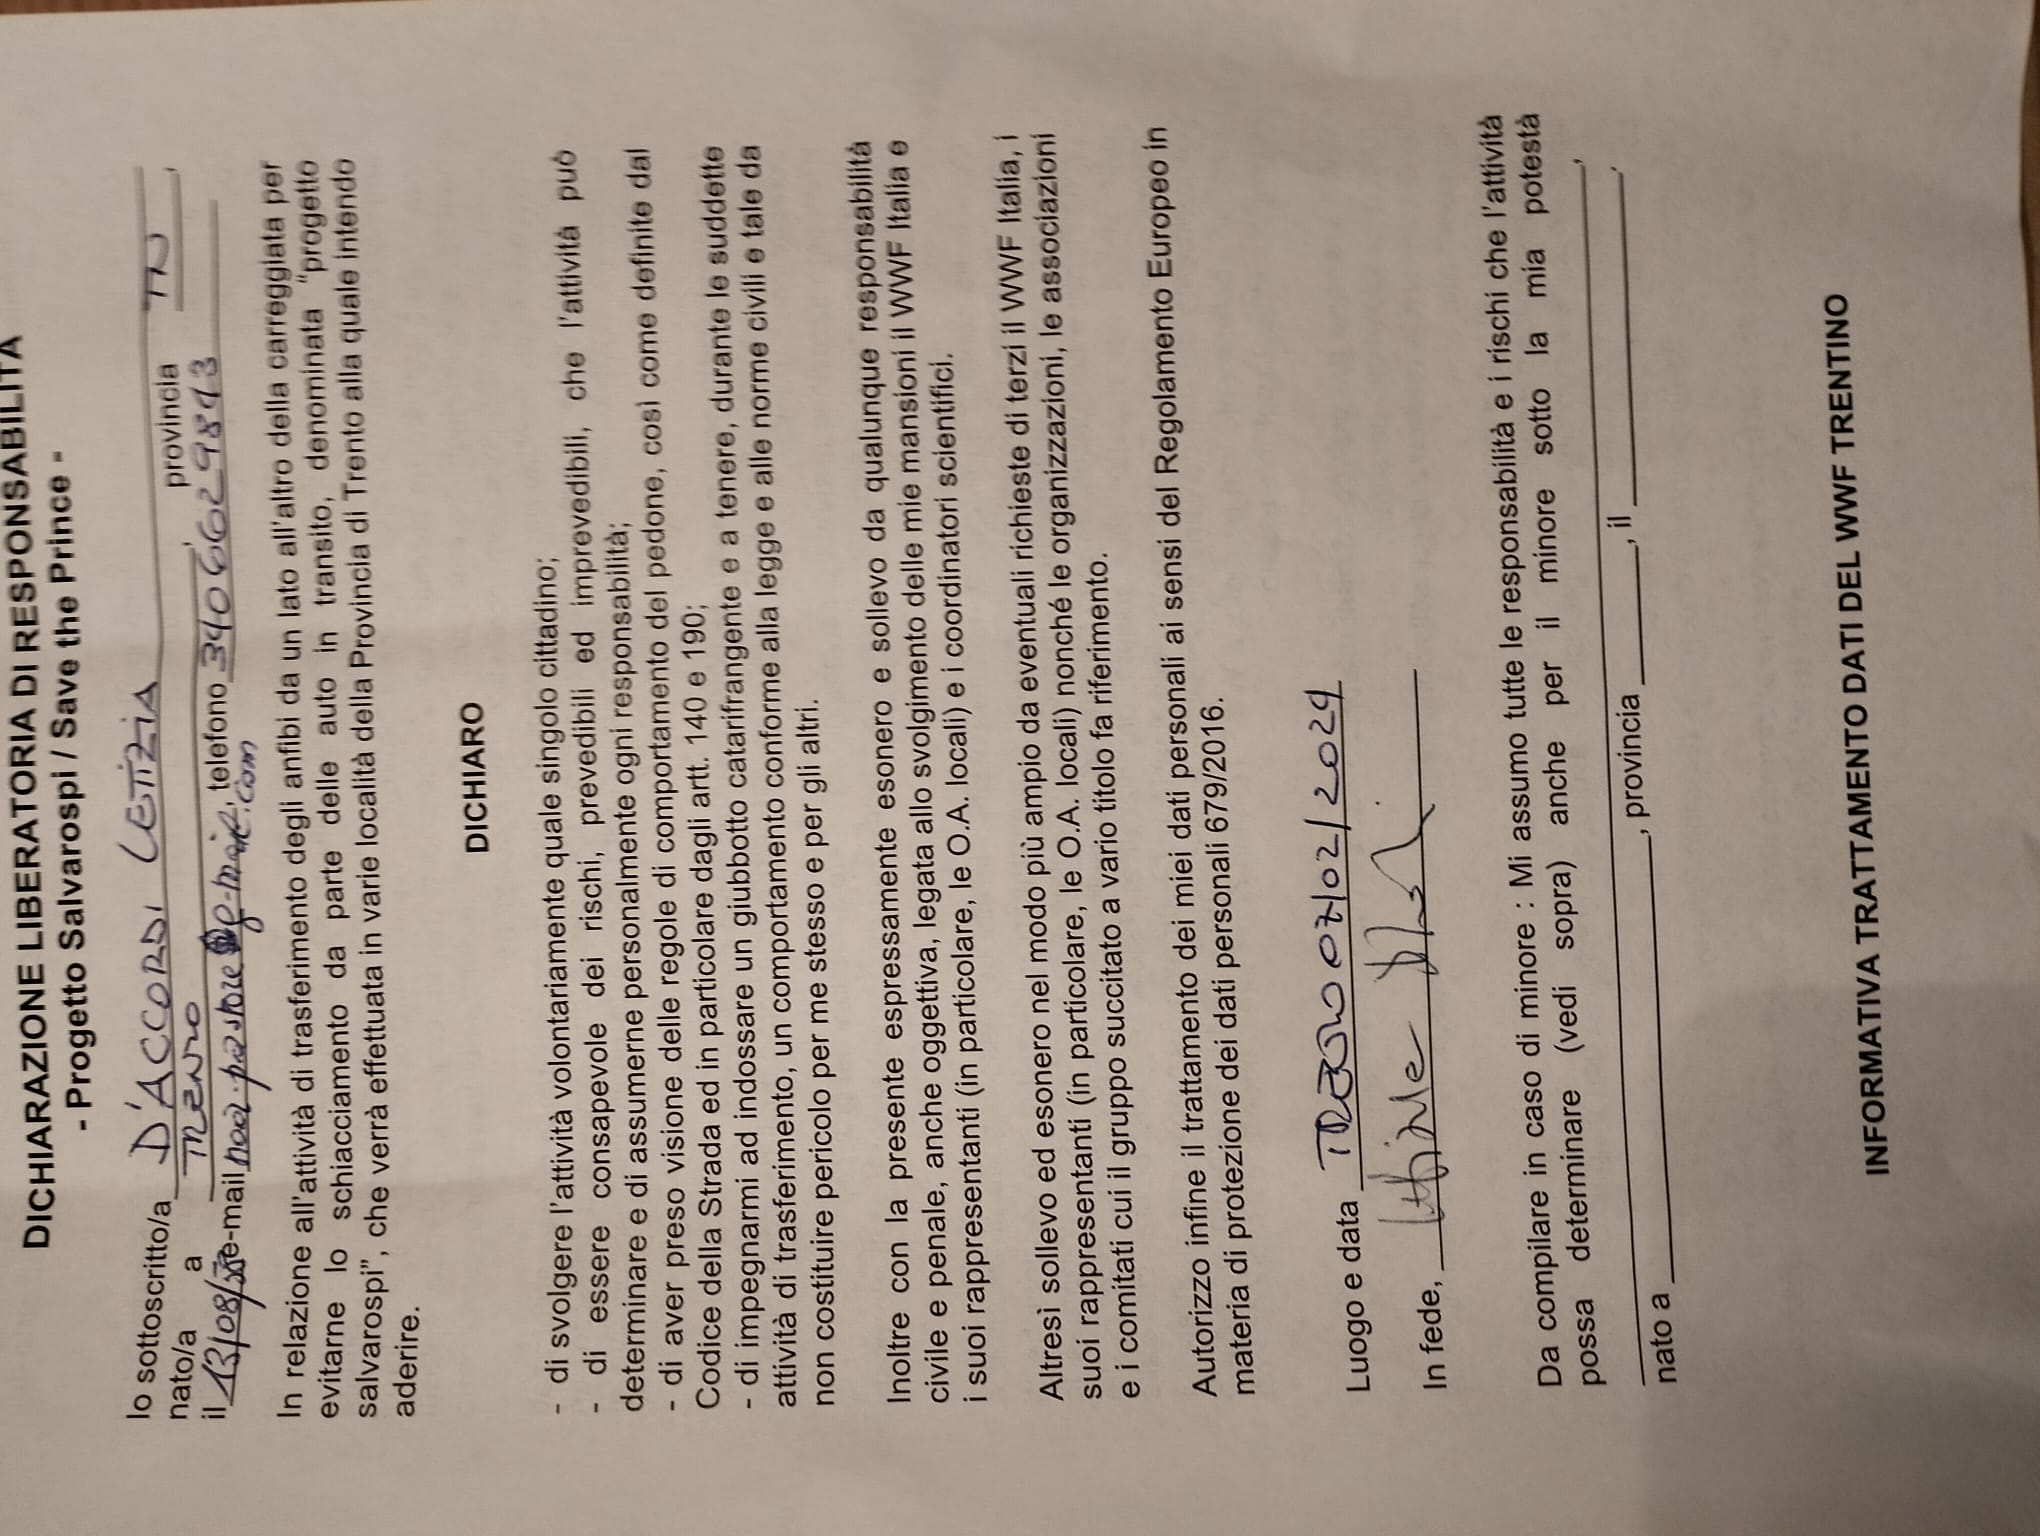 DICHIARAZIONE LIBERATORIA DI RESPONSABILITÀ
- Progetto Salvarospi / Save the Prince -
Io sottoscritto/a D'ACCORDI LETIZIA
nato/a a TRENTO, provincia TN,
il 13/08/ e-mail , telefono 3406629843
g-mail.com
In relazione all'attività di trasferimento degli anfibi da un lato all'altro della carreggiata per
evitarne lo schiacciamento da parte delle auto in transito, denominata "progetto
salvarospi", che verrà effettuata in varie località della Provincia di Trento alla quale intendo
aderire.
DICHIARO
- di svolgere l'attività volontariamente quale singolo cittadino;
- di essere consapevole dei rischi, prevedibili ed imprevedibili, che l'attività può
determinare e di assumerne personalmente ogni responsabilità;
- di aver preso visione delle regole di comportamento del pedone, così come definite dal
Codice della Strada ed in particolare dagli artt. 140 e 190;
- di impegnarmi ad indossare un giubbotto catarifrangente e a tenere, durante le suddette
attività di trasferimento, un comportamento conforme alla legge e alle norme civili e tale da
non costituire pericolo per me stesso e per gli altri.
Inoltre con la presente espressamente esonero e sollevo da qualunque responsabilità
civile e penale, anche oggettiva, legata allo svolgimento delle mie mansioni il WWF Italia e
i suoi rappresentanti (in particolare, le O.A. locali) e i coordinatori scientifici.
Altresì sollevo ed esonero nel modo più ampio da eventuali richieste di terzi il WWF Italia, i
suoi rappresentanti (in particolare, le O.A. locali) nonché le organizzazioni, le associazioni
e i comitati cui il gruppo succitato a vario titolo fa riferimento.
Autorizzo infine il trattamento dei miei dati personali ai sensi del Regolamento Europeo in
materia di protezione dei dati personali 679/2016.
Luogo e data TRENTO 07/02/2024
In fede,
Da compilare in caso di minore : Mi assumo tutte le responsabilità e i rischi che l'attività
possa determinare (vedi sopra) anche per il minore sotto la mia potestà
,
nato a , provincia , il ,
INFORMATIVA TRATTAMENTO DATI DEL WWF TRENTINO